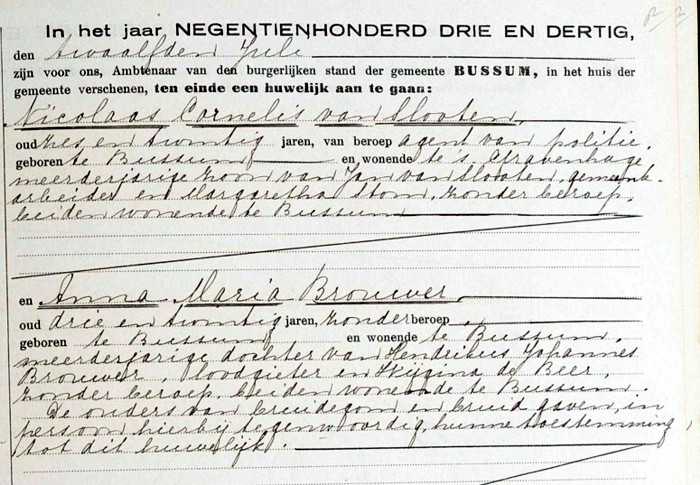 In het jaar NEGENTIENHONDERD DRIE EN DERTIG,
den twaalfden Juli
zijn voor ons, Ambtenaar van den burgerlijken stand der gemeente BUSSUM, in het huis der
gemeente verschenen, ten einde een huwelijk aan te gaan:
Nicolaas Cornelis van Slooten,
oud zes en twintig jaren, van beroep agent van politie,
geboren te Bussum en wonende te 's Gravenhage
meerderjarige zoon van Jan van Slooten, gemeente-
arbeider en Margaretha Stom, zonder beroep,
beiden wonende te Bussum
en Anna Maria Brouwer,
oud drie en twintig jaren, zonder beroep,
geboren te Bussum en wonende te Bussum,
meerderjarige dochter van Hendrikus Johannes
Brouwer, loodgieter en de Beer,
zonder beroep, beiden wonende te Bussum.
De ouders van bruidegom en bruid gaven, in
persoon hierbij tegenwoordig, hunne toestemming
tot dit huwelijk.